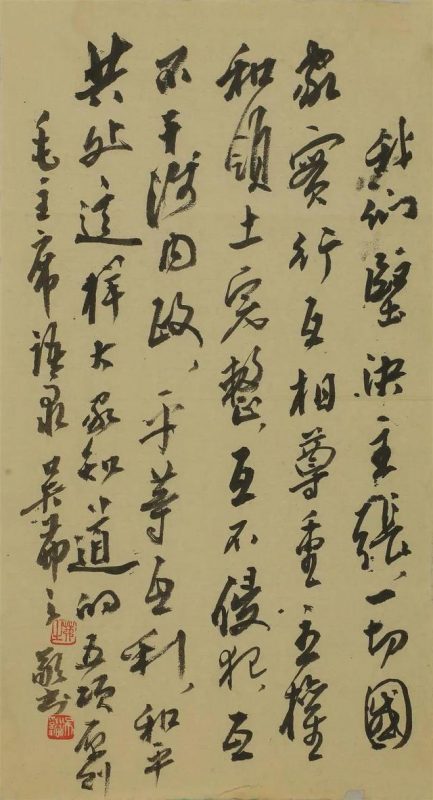 我们坚决主张，一切国
家实行互相尊重主權
和領土完整、互不侵犯、互
不干涉内政、平等互利、和平
共处这样大家知道的五项原则
毛主席语录 吴茀之敬书